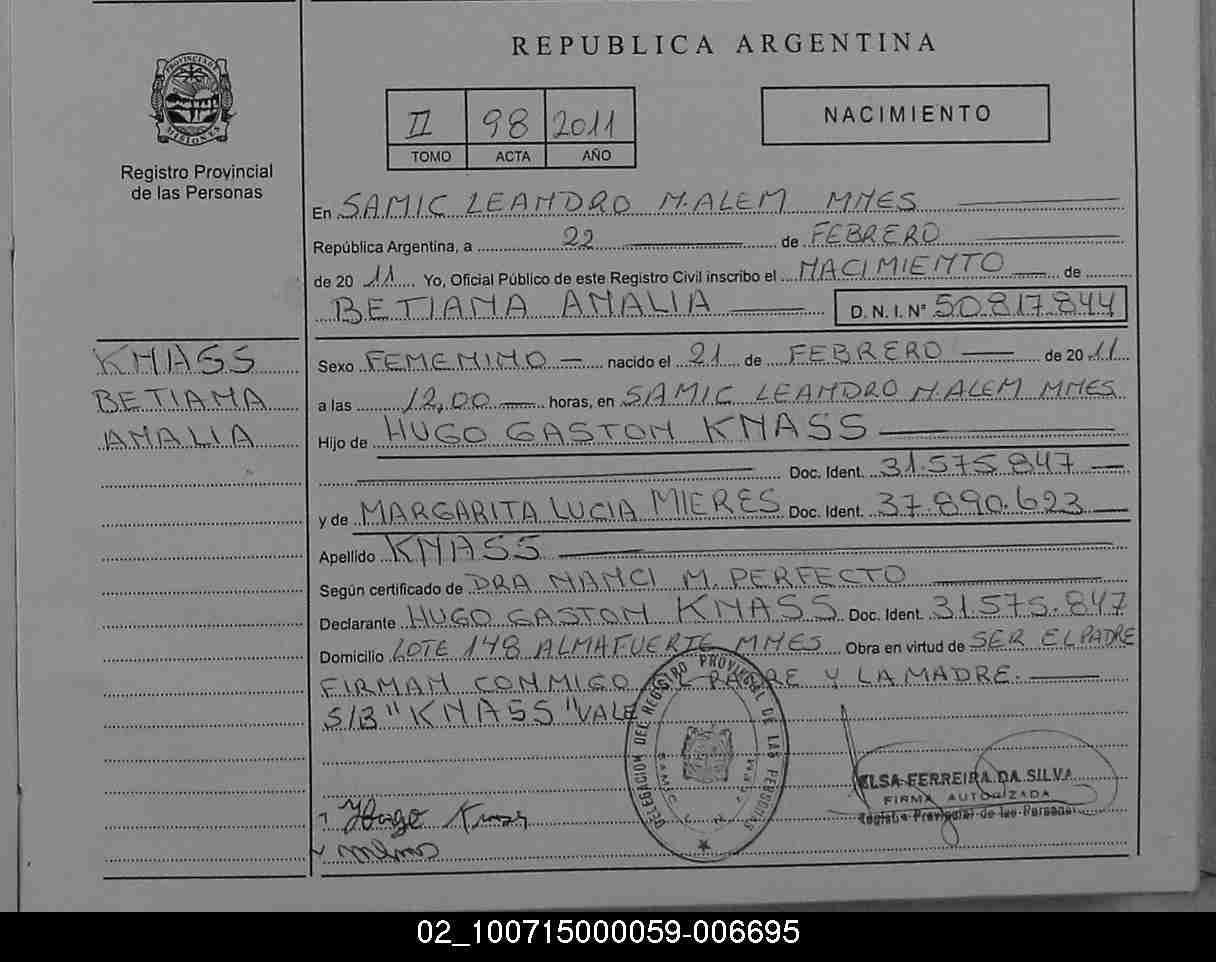 REPUBLICA ARGENTINA
PROVINCIA DE MISIONES
Registro Provincial
de las Personas
II 98 2011
TOMO ACTA AÑO
NACIMIENTO
En SAMIC LEANDRO N. ALEM MNES
República Argentina, a 22 de FEBRERO
de 2011 Yo, Oficial Público de este Registro Civil inscribo el NACIMIENTO de
BETIANA ANALIA D. N. I. N° 50.817.844
KNASS
BETIANA
ANALIA
Sexo FEMENINO nacido el 21 de FEBRERO de 2011
a las 12,00 horas, en SAMIC LEANDRO N. ALEM MNES
Hijo de HUGO GASTON KNASS
Doc. Ident. 31.575.847
y de MARGARITA LUCIA MIERES Doc. Ident. 37.890.623
Apellido KNASS
Según certificado de DRA NANCI M. PERFECTO
Declarante HUGO GASTON KNASS Doc. Ident. 31.575.847
Domicilio LOTE 148 ALMAFUERTE MNES Obra en virtud de SER EL PADRE
FIRMAN CONMIGO EL PADRE Y LA MADRE.
S/B "KNASS" VALE
DELEGACION DEL REGISTRO PROVINCIAL DE LAS PERSONAS
ELSA FERREIRA DA SILVA
FIRMA AUTORIZADA
Registro Provincial de las Personas
Hugo Knass
02_100715000059-006695